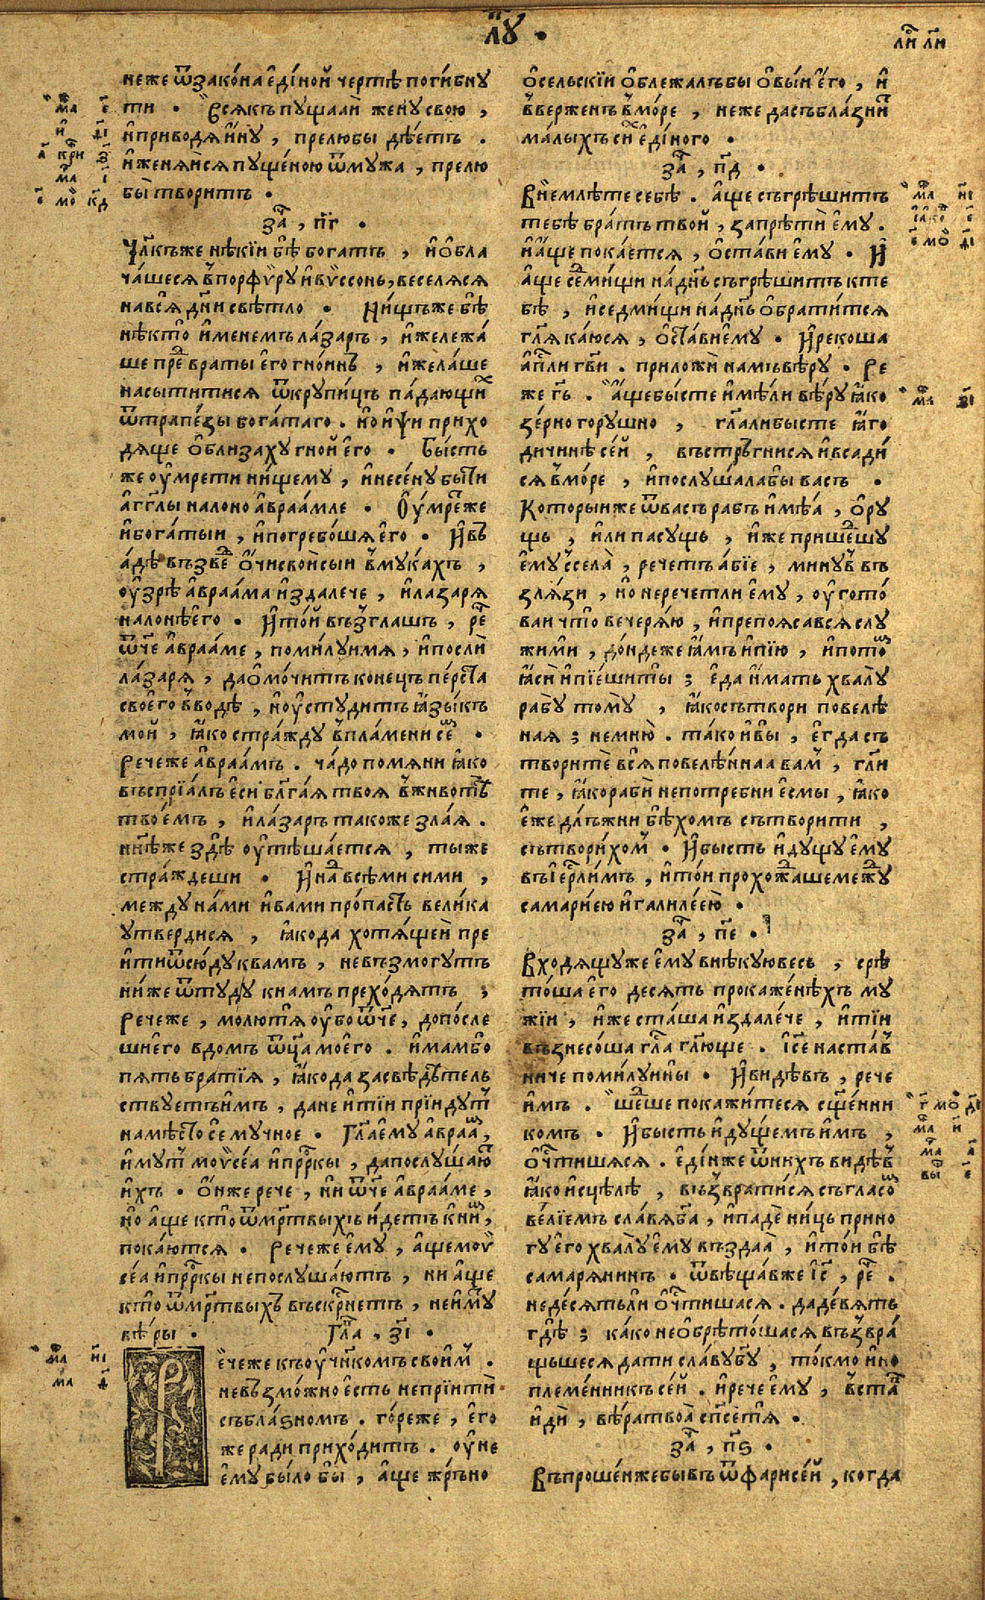 лꙋ ·
неже ѿзако́на є҆ди́ной чертѣ поги́бнꙋ
ти · Всѧкъ пꙋщааи женꙋ свою ,
и҆ приводѧ и҆нꙋ , прелюбы дѣетъ .
и҆ женѧйсѧ пꙋще́ною ѿмꙋжа , прелю
бы̀ творитъ .
за҇ , пг҃ .
Чл҃къ же нѣкїи бѣ̀ богатъ , и҆ ѻ҆бла
чашесѧ в̾порфѵ́рꙋ и҆ вѵ́ссонь , веселѧсѧ
на всѧ̀ дн҃и свѣтло · Нищъ же бѣ̀
нѣкто и҆менемъ ла́заръ , и҆же лежа́
ше пред̾ враты є҆го̀ гно́инъ , и҆ жела́ше
насытитисѧ ѿкрꙋпи́цъ па́дающих̾
ѿтрапе́зы бога́таго . но и҆ псѝ прихо
дѧще ѻ҆близахꙋ гно́й є҆го̀ · Бы́сть
же ᲂу҆мрети ни́щемꙋ , и҆ несе́нꙋ бы́ти
а҆гг҃лы на лоно а҆враа́мле · Ѹ҆мре́ же
и҆ бога́тыи , и҆ погребо́шѧ є҆го̀ · И҆ въ
а́дѣ възве́д ѻ҆́чи свои̑ сыи в̾мꙋ́кахъ ,
ᲂу҆зрѣ̀ а҆враа́ма и҆здалече , и҆ лазарѧ
на лонѣ є҆го̀ · И҆ то́й възгла́шъ , рече҇
ѿч҃е а҆враа́ме , поми́лꙋи мѧ , и҆ послѝ
ла́зарѧ , да ѻ҆мо́читъ коне́цъ пе́рста
своего̀ в̾водѣ̀ , и҆ ᲂу҆стꙋ́дитъ ѩ҆зы́къ
мо́й , ꙗ҆́ко стра́ждꙋ в̾пла́мени се́м ·
Рече же а҆враа́мъ . ча́до помѧни ꙗ҆́ко
въспрїа́лъ є҆сѝ бл҃га́ѧ твоѧ̀ в̾животѣ
твоемъ , и҆ ла́заръ такоже зла́ѧ .
нн҃ѣ же здѣ̀ ᲂу҆тѣша́етсѧ , ты́ же
стра́ждеши · И҆ над̾ всѣ́ми сими ,
междꙋ на́ми и҆ вами про́пасть вели́ка
ᲂутверди́сѧ , ꙗ҆́ко да хотѧ́щеи пре
и҆тѝ ѿсю́дꙋ к̾вамъ , не възмогꙋтъ
ни́же ѿтꙋ́дꙋ к̾намъ прехо́дѧтъ ;
Рече же , молю́тѧ ᲂу҆́бо ѿч҃е , да по́сле
ши є҆го̀ в̾домъ ѿц҃а моего̀ . и҆мамбо
пѧть бра́тїѧ , ꙗ҆́ко да засвѣдѣ́тель
ствꙋетъ и҆мъ , да не и҆ ті́и прїи́дꙋт̾
на мѣ́сто се́ мꙋчное · Гл҃а є҆мꙋ̀ а҆враам̾ ,
и҆мꙋт̾ моѵсе́а и҆ пр҃ркы , да послꙋ́шаю҇
и҆хъ · Ѻ҆́нже рече , ни ѿч҃е а҆враа́ме ,
но а҆́ще кто̀ ѿ мр҃твыхъ и҆́детъ к̾ним ,
пока́ютсѧ · Рече же є҆мꙋ̀ , а҆́ще моѵ
се́а и҆ пр҃ркы не послꙋ́шаютъ , ни а҆́ще
кто̀ ѿ мр҃твыхъ въскрн҇етъ , не и҆мꙋ҇
вѣ́ры · Гла҃ , зі҃ ·
Рече же къ ᲂу҆чн҃комъ свои́м .
невъзмо́жно є҆сть не прїитѝ
събла́зномъ . го́ре же , є҆го
же ради прихо́дитъ . ᲂу҆не
є҆мꙋ̀ бы́ло бы̀ , а҆́ще жръно
ѻ҆сельскїи ѻ҆блежалъ бы ѻ҆ вы́и є҆го̀ , и҆
вверженъ в̾мо́ре , неже да съблазни҇
ма́лыхъ си́х є҆ди́ного ·
за҇ , пд҃ .
Внемлѣ́те себѣ̀ . а҆́ще съгрѣши́тъ
тебѣ̀ бра́тъ твой , запретѝ є҆мꙋ̀ .
и҆ а҆́ще пока́етсѧ , ѻ҆ста́ви є҆мꙋ̀ · И҆
а҆́ще се́дмищи на́ днь съгрѣши́тъ к̾те
бѣ̀ , и҆ седми́щи на́ днь ѻ҆брати́тсѧ
гл҃ѧ ка́юсѧ , ѻ҆ста́ви є҆мꙋ̀ · И҆ реко́ша
а҆пл҃и гв҃и . приложѝ намъ вѣ́рꙋ · Ре
же гь҃ . А҆́ще бы́сте и҆мѣ́ли вѣ́рꙋ ꙗ҆́ко
зе́рно горꙋ́шно , гл҃а́ли бы́сте ꙗ҆́го
ди́чинѣ се́й , въстръгнисѧ и҆ всади́
сѧ в̾мо́ре , и҆ послꙋ́шала бы̀ васъ ·
Которыи же ѿ васъ раба̀ и҆мѣ́а , ѻ҆рꙋ
щь , и҆́ли пасꙋ́щь , и҆́же прише́дшꙋ
є҆мꙋ̀ с̾села̀ , рече́тъ а҆́бїе , минꙋ́в̾ въ
злѧ́зи , но не рече́т ли є҆мꙋ̀ , ᲂу҆гото́
ваи что вечерѧ́ю , и҆ препоѧ́савсѧ слꙋ
жи́ ми , до́ндеже ꙗ҆́мъ и҆ пїю̀ , и҆ пото́м
ꙗ҆́си и҆ пїе́ши ты̀ ; є҆да и҆́мать хва́лꙋ
рабꙋ̀ томꙋ̀ , ꙗ҆́ко сътвори повелѣ́
ная ; не мню̀ . та́ко и҆ вы̀ , є҆гда съ
творитѐ всѧ̀ повелѣ́ннаа ва́м , гл҃и
те , ꙗ҆́ко рабѝ непотребни є҆смы̀ , ꙗ҆́ко
є҆́же длъ́жни бѣ́хомъ сътвори́ти ,
сътвори́хом · И҆ бы́сть и҆дꙋ́щꙋ є҆мꙋ̀
въ і҆ерл҃и́мъ , и҆ то́й прохожда́ше ме́ждꙋ
самарїею и҆ галиле́ею ·
за҇ , пе҃ .
Входѧщꙋ же є҆мꙋ̀ в̾нѣ́кꙋю ве́сь , срѣ
то́ша є҆го̀ де́сѧть прокаже́нѣхъ мꙋ
жїи , и҆́же ста́ша и҆здале́че , и҆ ті́и
възнесо́ша гла҃ гл҃юще . І҆с҃е наста́в
ниче поми́лꙋи ны̀ · И҆ ви́дѣвъ , рече
и҆мъ . ше́дше покажи́тесѧ сщ҃е́нни
комъ · И҆ бы́сть и҆дꙋ́щемъ и҆мъ ,
ѻ҆ч҃тишасѧ . є҆ди́нже ѿни́хъ ви́дѣв
ꙗ҆́ко и҆сцѣлѣ̀ , възврати́сѧ съ гласо́м
ве́лїемъ сла́вѧ ба҃ , и҆ падѐ ни́ць при но
гꙋ̀ є҆го̀ хвалꙋ̀ є҆мꙋ̀ въздаа̀ , и҆ то́й бѣ̀
самарѧни́нъ · ѿвѣща́в же і҆с҃ , рече҇ .
не де́сѧть ли ѻ҆ч҃тишасѧ . да де́вѧть
гдѣ̀ ; ка́ко не ѻ҆брѣто́шасѧ възвра́
щьшесѧ да́ти сла́вꙋ бг҃ꙋ , то́кмо и҆но
племе́нникъ се́й . и҆ рече є҆мꙋ̀ , в̾ста́в
и҆дѝ , вѣ́ра твоа̀ сп҃сетѧ ·
за҇ , пѕ҃ .
Въпроше́н же бы́въ ѿ фарисе́й , когда